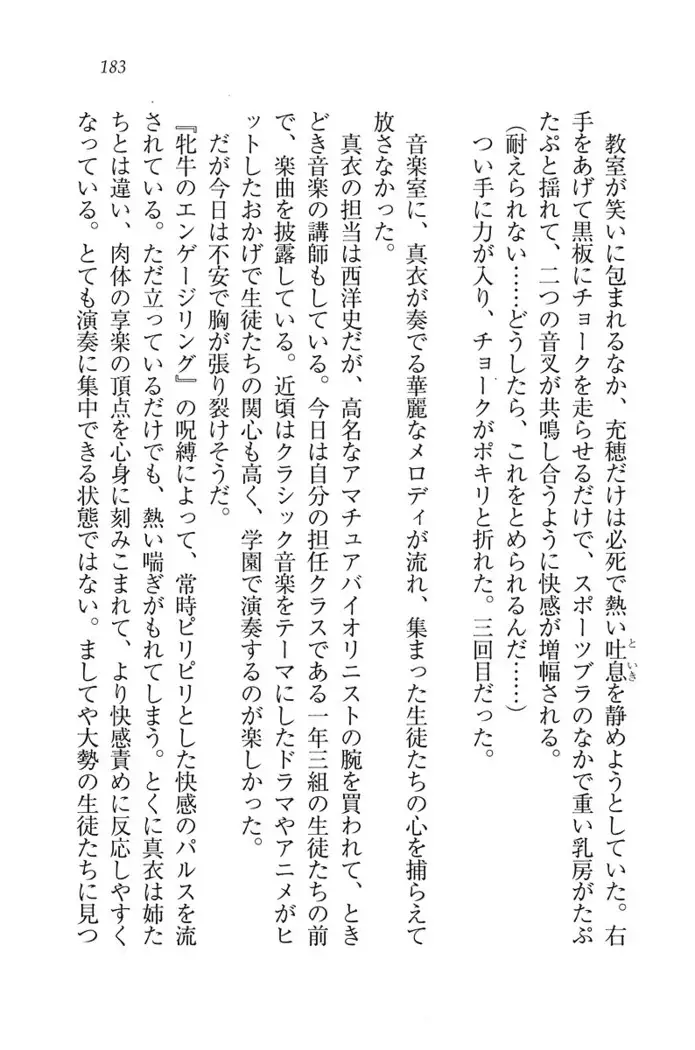 183
教室が笑いに包まれるなか、充穂だけは必死で熱い吐息を静めようとしていた。右
といき
手をあげて黒板にチョークを走らせるだけで、スポーツブラのなかで重い乳房がたぷ
たぷと揺れて、二つの音叉が共鳴し合うように快感が増幅される。
(耐えられない……どうしたら、これをとめられるんだ……)
つい手に力が入り、チョークがポキリと折れた。三回目だった。
音楽室に、真衣が奏でる華麗なメロディが流れ、集まった生徒たちの心を捕らえて
放さなかった。
真衣の担当は西洋史だが、高名なアマチュアバイオリニストの腕を買われて、とき
どき音楽の講師もしている。今日は自分の担任クラスである一年三組の生徒たちの前
で、楽曲を披露している。近頃はクラシック音楽をテーマにしたドラマやアニメがヒ
ットしたおかげで生徒たちの関心も高く、学園で演奏するのが楽しかった。
だが今日は不安で胸が張り裂けそうだ。
『牝牛のエンゲージリング』の呪縛によって、常時ピリピリとした快感のパルスを流
されている。ただ立っているだけでも、熱い喘ぎがもれてしまう。とくに真衣は姉た
ちとは違い、肉体の享楽の頂点を心身に刻みこまれて、より快感責めに反応しやすく
なっている。とても演奏に集中できる状態ではない。ましてや大勢の生徒たちに見つ